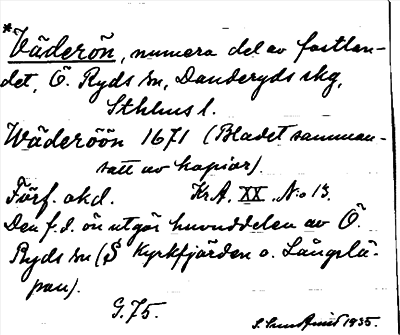 *Väderön, numera del av fastlan-
det, Ö. Ryds sn, Danderyds skg,
Sthlms l.
Wäderöön 1671 (Bladet samman-
satt av kopior).
Förf. okd. KrA. XX. No 13.
Den f.d. ön utgör huvuddelen av Ö.
Ryds sn (§ Kyrkfjärden o. Långslä-
pan).
G.75.
1935.